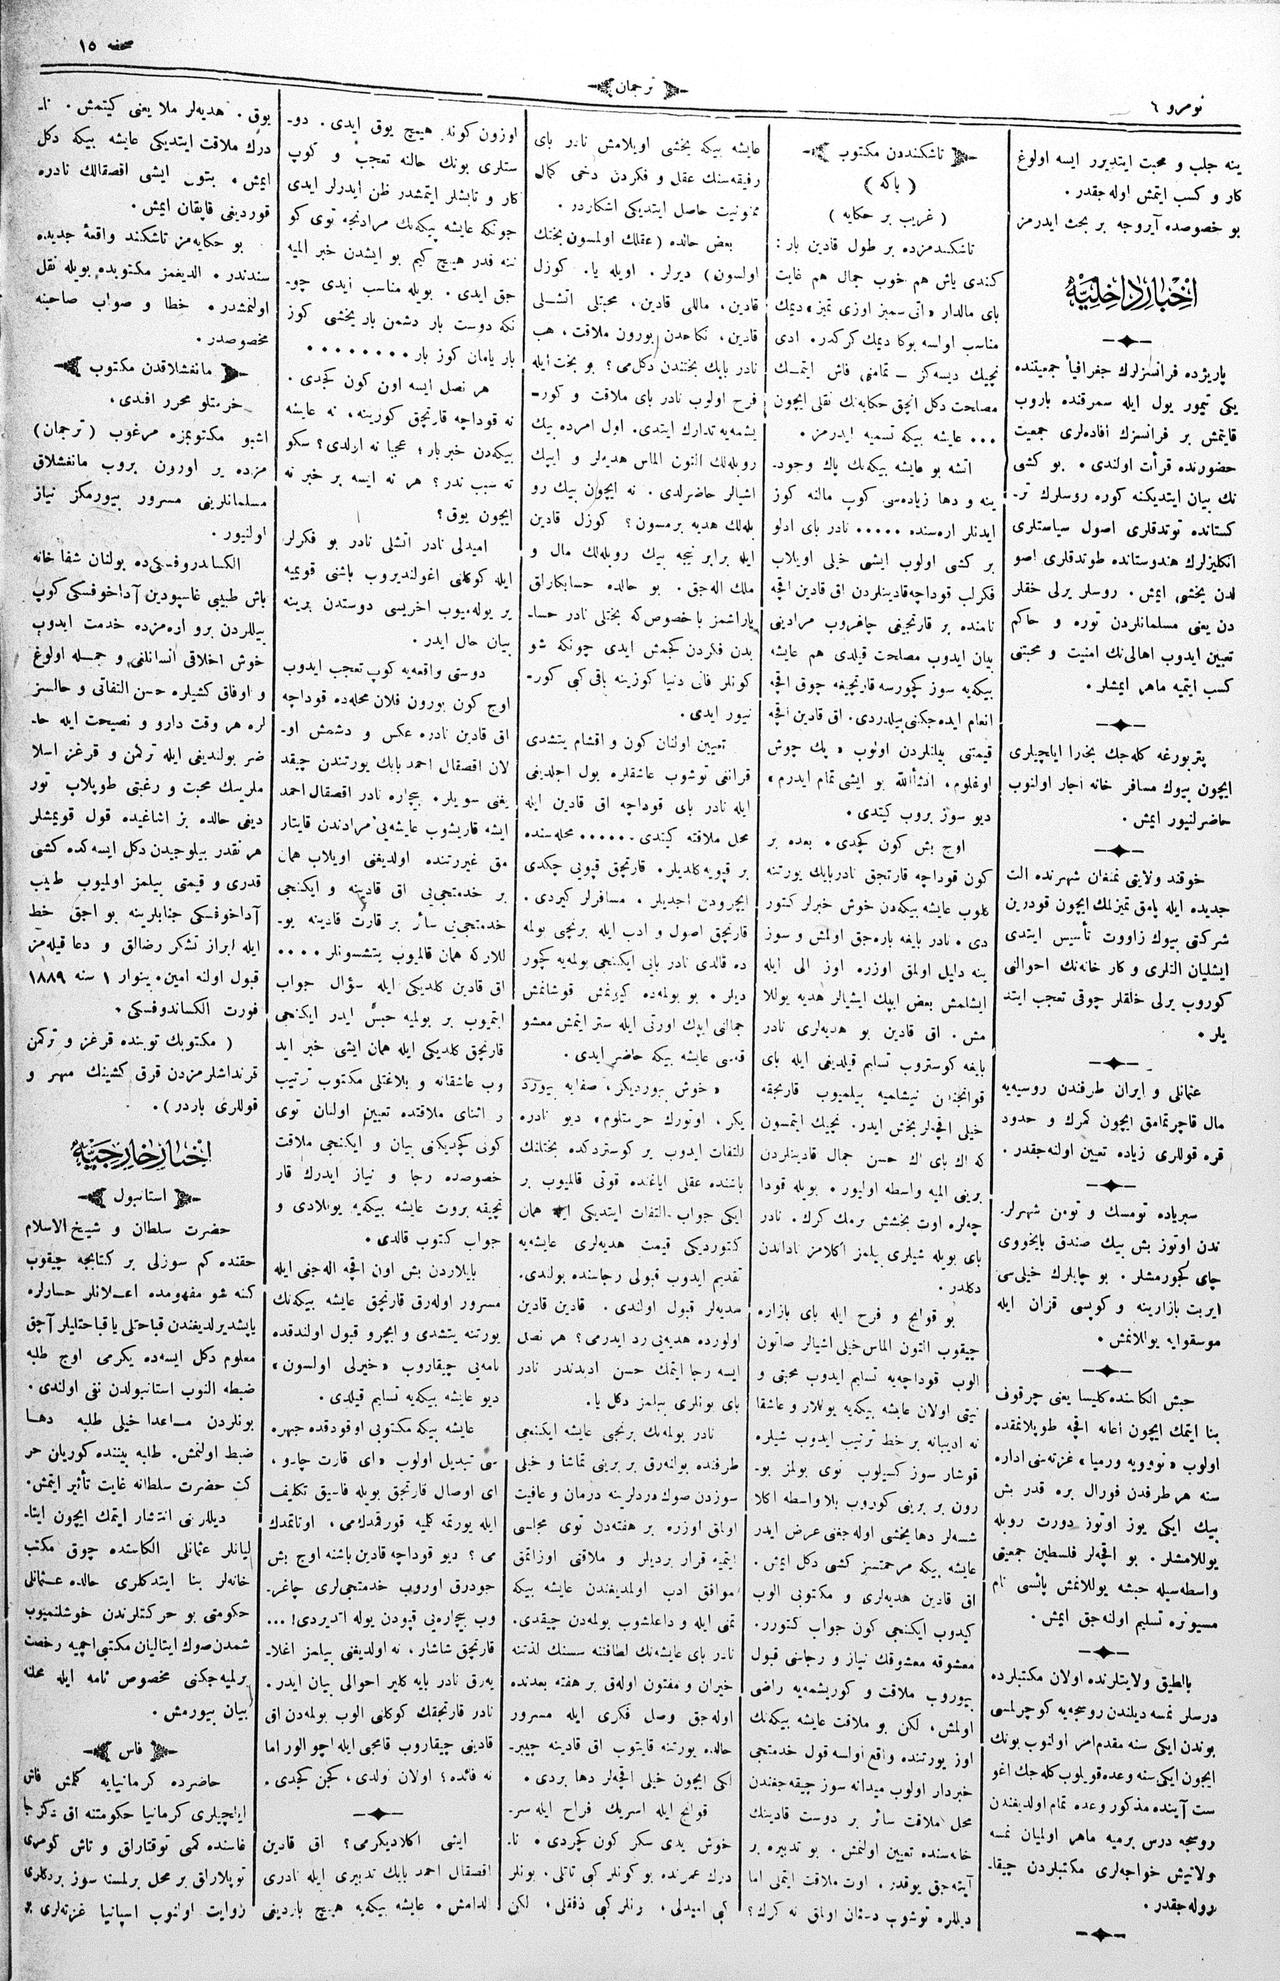 نومرو ٦
ترجمان
صحفه ١٥
ينه جلب و محبت ايتديرر ايسه اولوغ
كار و كسب ايتمش اوله جقدر.
بو خصوصده آيروجه بر بحث ايدرمز
اخبار داخليه
پاريژده فرانسزلرك جغرافيا جمعيتنده
يكى تيمور يول ايله سمرقنده باروب
قايتمش بر فرانسزك افاده‌لرى جمعيت
حضورنده قرأت اولندى. بو كشى
نك بيان ايتديكنه كوره روسلرك تر-
كستانده توتدقلرى اصول سياستلرى
انكليزلرك هندوستانده طوتدقلرى اصو
لدن بخشى ايمش. روسلر يرلى خلقلر
دن يعنى مسلمانلردن توره و حاكم
تعيين ايدوب اهالى‌نك امنيت و محبتنى
كسب ايتميه ماهر ايمشلر.
پتربورغه كله‌جك بخارا ايلچيلرى
ايچون بيوك مسافر خانه اجار اولنوب
حاضرلنيور ايمش.
خوقند ولايتى نمنغان شهرنده الت
جديده ايله پامق تميزلمك ايچون قودرين
شركتى بيوك زاووت تأسيس ايتدى
ايشليان التلرى و كار خانه‌نك احوالنى
كوروب يرلى خلقلر چوقى تعجب ايتد
يلر.
عثمانلى و ايران طرفندن روسيه‌يه
مال قاچرتمامق ايچون كمرك و حدود
قره قوللرى زياده تعيين اولنه‌جقدر.
سبرياده تومسك و تومن شهرلر-
ندن اوتوز بش بيك صندق بايخووى
چاى كچورمشلر. بو چايلرك خيلى‌سى
ايربت بازارينه و كوپسى قزان ايله
موسقوايه يوللانمش.
حبش الكاسنده كليسا يعنى چرقوف
بنا ايتمك ايچون اعانه اقچه طوپلانمقده
اولوب «نوويه ورميا» غزته‌سى اداره
سنه هر طرفدن فورال بره قدر بش
بيك ايكى يوز اوتوز دورت روبله
يوللامشلر. بو اقچه‌لر فلسطين جمعيتى
واسطه‌سيله حبشه يوللانمش پائسى نام
مسيونره تسليم اولنه‌جق ايمش.
بالطيق ولايتلرنده اولان مكتبلرده
درسلر نمسه ديلندن روسجه‌يه كوچرلمسى
بوندن ايكى سنه مقدم امر اولنوب بونك
ايچون ايكى سنه وعده قويلوب كله‌جك اغو
ست آينده مذكور وعده تمام اولديغندن
روسجه درس برميه ماهر اولميان نمسه
ولاتيش خواجه‌لرى مكتبلردن چيقا-
روله‌جقدر.
تاشكنددن مكتوب
( باكه )
( غريب بر حكايه )
تاشكندمزده بر طول قادين بار:
كندى ياش هم خوب جمال هم غايت
باى مالدار «اتى سميز اوزى تميز» ديمك
مناسب اولسه بوكا ديمك كركدر. ادى
نچيك ديسه‌كز – تمامنى فاش ايتمك
مصلحت دكل انجق حكايه‌نك نقلى ايچون
... عايشه بيكه تسميه ايدرمز.
اتشه بو عايشه بيكه‌نك پاك وجود-
ينه و دها زياده‌سى كوب مالنه كوز
ايدنلر اره‌سنده ..... نادر باى ادلو
بر كشى اولوب ايشى خيلى اويلاب
فكرلب قوداچه قادينلردن اق قادين اقچه
نامنده بر قارتچيغى چاقروب مرادينى
بيان ايدوب مصلحت قيلدى هم عايشه
بيكه‌يه سوز كچورسه قارتچيغه چوق اقچه
انعام ايده‌جكنى بيلدردى. اق قادين اقچه
قيمتنى بيلنلردن اونوب «پك چوش
اوغلوم. انشاالله بو ايشى تمام ايدرم»
ديو سوز بروب كيتدى.
اوج بش كون كچدى. بعده بر
كون قوداچه قارتچق نادربايك يورتنه
كلوب عايشه بيكه‌دن خوش خبرلر كتور
دى. نادر بايغه باره‌جق اولمش و سوز
ينه دليل اولمق اوزره اوز الى ايله
ايشلمش بعض ايپك ايشيالر هديه يوللا
مش. اق قادين بو هديه‌لرى نادر
بايغه كوستروب تسليم قيلديغى ايله باى
قوانچندن نيشلاميه بيلميوب قارتچيغه
خيلى اقچه‌لر بخش ايدر. نچيك ايتمسون
كه اك باى اك حسن جمال قادينلردن
برينى الميه واسطه اوليور. بويله قودا
چه‌لره اوت بخشش برمك كرك. نادر
باى بويله شيلرى بيلمز اكلامز ناداندن
دكلدر.
بو قوانچ و فرح ايله باى بازاره
چيقوب التون الماس خيلى اشيالر صاتون
الوب قوداچه‌يه تسليم ايدوب محبتى و
نيتى اولان عايشه بيكه‌يه يوللار و عاشقا
نه اديبانه بر خط ترتيب ايدوب شيلره
قوشار سوز كسيلوب توى بولمز بو-
رون بر برينى كوروب بلا واسطه اكلا
شسه‌لر دها بخشى اوله‌جغى عرض ايدر
عايشه بيكه مرحمتسز كشى دكل ايمش.
اق قادين هديه‌لرى و مكتوبى الوب
كيدوب ايكنجى كون جواب كتورر.
معشوقه معشوقك نياز و رجاسنى قبول
بيوروب ملاقت و كوريشمه‌يه راضى
اولمش، لكن بو ملاقت عايشه بيكه‌نك
اوز يورتنده واقع اولسه قول خدمتجى
خبردار اولوب ميدانه سوز چيقه‌جغندن
محل ملاقت سائر بر دوست قادينك
خانه‌سنده تعيين اولنمش. بو تدبيره بر
آيته‌جق يوقدر. اوت ملاقت ايتملى اما
ديللره توشوب دشمان اولمق نه كرك؟
عايشه بيكه بخشى اويلامش نادر باى
رفيقه‌سنك عقل و فكردن دخى كمال
ممنونيت حاصل ايتديكى اشكاردر.
بعض حالده (عقلك اولمسون بختك
اولسون) ديرلر. اويله يا. كوزل
قادين، ماللى قادين، محبتلى اتشلى
قادين، نكاحدن بورون ملاقت، هب
نادر بايك بختندن دكلمى؟ بو بخت ايله
فرح اولوب نادر باى ملاقت و كور-
يشمه‌يه تدارك ايتدى. اول امرده بيك
روبله‌لك التون الماس هديه‌لر و ايپك
اشيالر حاضرلدى. نه ايچون بيك رو
بله‌لك هديه برمسون؟ كوزل قادين
ايله برابر نيجه بيك روبله‌لك مال و
ملك اله‌جق. بو حالده حسابكارلق
ياراشمز با خصوص كه بختلى نادر حسا-
بدن فكردن كچمش ايدى چونكه شو
كونلر فانى دنيا كوزينه باقى كبى كور-
نيور ايدى.
تعيين اولنان كون و اقشام يتشدى
قرانغى توشوب عاشقلره يول اچلديغى
ايله نادر باى قوداچه اق قادين ايله
محل ملاقته كيتدى ...... محله‌سنده
بر قپويه كلديلر. قارتچق قپويى چكدى
ايچرودن اچديلر. مسافرلر كيردى.
قارتچق اصول و ادب ايله برنجى بولمه
ده قالدى نادر بايى ايكنجى بولمه‌يه كچور
ديلر. بو بولمه‌ده كيزنمش قوشانمش
جمالنى ايپك اورتى ايله ستر ايتمش معشو
قه‌سى عايشه بيكه حاضر ايدى.
«خوش بيورديكز، صفايه بيورد
يكز، اوتورك حرمتلوم» ديو نادره
التفات ايدوب ير كوستردكده بختلنك
باشنده عقلى اياغنده قوتى قالميوب بر
ايكى جواب التفات ايتديكى ايله همان
كتورديكى قيمت هديه‌لرى عايشه‌يه
تقديم ايدوب قبولى رجاسنده بولندى.
هديه‌لر قبول اولندى. قادين قادين
اولورده هديه‌يى رد ايدرمى؟ هر نصل
ايسه رجا ايتمك حسن ادبندندر نادر
باى بونلرى بيلمز دكل يا.
نادر بولمه‌نك برنجى عايشه ايكنجى
طرفنده بولنه‌رق بر برينى تماشا و خيلى
سوزدن صوك دردلرينه درمان و عاقبت
اولمق اوزره بر هفته‌دن توى مجلسى
ايتميه قرار برديلر و ملاقتى اوزاتمق
موافق ادب اولمديغندن عايشه بيكه
تمنى ايله و داعلشوب بولمه‌دن چيقدى.
نادر باى عايشه‌نك لطافتنه سسنك لذتنه
حيران و مفتون اوله‌رق بر هفته بعدنده
اوله‌جق وصل فكرى ايله مسرور
حالده يورتنه قايتوب اق قادينه چيبر-
لكى ايچون خيلى اقچه‌لر دها بردى.
قوانچ ايله اسرمك فراح ايله سر-
خوش يدى سكز كون كچردى. نا-
درك عمرنده بو كونلر كبى تاتلى. بونلر
كبى اميدلى، رنلر كبى ذففلى، لكن
اوزون كونه هيچ يوق ايدى. دو-
ستلرى بونك حالنه تعجب و كوپ
كار و تابشلر ايتمشدر ظن ايدرلر ايدى
چونكه عايشه بيكه‌نك مرادنجه توى كو
ننه قدر هيچ كيم بو ايشدن خبر الميه
جق ايدى. بويله مناسب ايدى چو-
نكه دوست بار دشمن بار يخشى كوز
بار يامان كوز بار ........
هر نصل ايسه اون كون كچدى.
نه قوداچه قارتچق كورينه، نه عايشه
بيكه‌دن خبر بار؛ عجبا نه ارلدى؟ سكو
ته سبب ندر؟ هر نه ايسه بر خبر نه
ايچون يوق؟
اميدلى نادر اتشلى نادر بو فكرلر
ايله كوكلنى اغولنديروب باشنى قويميه
ير بوله‌ميوب اخريسى دوستدن برينه
بيان حال ايدر.
دوستى واقعه‌يه كوپ تعجب ايدوب
اوج كون بورون فلان محله‌ده قوداچه
اق قادين نادره عكس و دشمش او-
لان اقصقال احمد بايك يورتندن چيقد
يغنى سويلر. بيچاره نادر اقصقال احمد
ايشه قاريشوب عايشه‌يى مرادندن قايتار
مق غيررتنده اولديغنى اويلاب همان
بر خدمتجى‌يى اق قادينه و ايكنجى
خدمتجى‌يى سائر بر قارت قادينه يو-
للارکه همان قالميوب يتشسونلر ....
اق قادين كلديكى ايله سؤال جواب
ايتميوب بر بولميه حبس ايدر ايكنجى
قارتچق كلديكى ايله همان ايشى خبر ايد
وب عاشقانه و بلاغتلى مكتوب ترتيب
ر اثناى ملاقتده تعيين اولنان توى
كونى كچديكنى بيان و ايكنجى ملاقت
خصوصده رجا و نياز ايدرك قار
تچيقه بروت عايشه بيكه‌يه يوللادى و
جواب كتوب قالدى.
بايلاردن بش اون اقچه اله‌جغى ايله
مسرور اوله‌رق قارتچق عايشه بيكه‌نك
يورتنه يتشدى و ايچرو قبول اولندقده
نامه‌يى چيقاروب «خيرلى اولسون»
ديو عايشه بيكه‌يه تسليم قيلدى.
عايشه بيكه مكتوبى اوقودقده چهره
سى تبديل اولوب «اى قارت چادو،
اى اوصال قارتچق بويله فاسيق تكليف
ايله يورتمه كلميه قورقمدكمى، اوتانمدك
مى؟ ديو قوداچه قادين باشنه اوج بش
جودرق اوروب خدمتجى‌لرى چاغر-
وب بيچاره‌يى قپودن يوله اتديردى!...
قارتچق شاشار، نه اولديغنى بيلمز اغلا-
يه‌رق نادر بايه كلير احوالى بيان ايدر.
نادر قارتچقك كوكلنى الوب بولمه‌دن اق
قادينى چيقاروب قامچى ايله اچو الور اما
نه فائده؛ اولان اولدى، كچن كچدى.
ايشى اكلاديكزمى؟ اق قادين
اقصقال احمد بايك تدبيرى ايله نادرى
الدامش. عايشه بيكه‌يه هيچ بارديغى
يوق. هديه‌لر ملا يعنى كيتمش. نا-
درك ملاقت ايتديكى عايشه بيكه دكل
ايمش. بتون ايشى اقصقالك نادره
قوردينى قاپقان ايمش.
بو حكايه‌مز تاشكند واقعۀ جديده
سندندر. الديغمز مكتوبده بويله نقل
اولنمشدر. خطا و صواب صاحبنه
مخصوصدر.
مانغشلاقدن مكتوب
حرمتلو محرر افندى.
اشبو مكتوبمزه مرغوب (ترجمان)
مزده ير اورون بروب مانغشلاق
مسلمانلرينى مسرور بيورمكز نياز
اولنيور.
الكساندروفسكى‌ده بولنان شفا خانه
باش طبيبى غاسپودين آداخوفسكى كوپ
ييللردن برو اره‌مزده خدمت ايدوب
خوش اخلاقى انسانلغى و جمله اولوغ
و اوفاق كشيلره حسن التفاتى و حالسز
لره هر وقت دارو و نصيحت ايله حا-
ضر بولنديغى ايله تركمن و قرغز اسلا
ملريىك محبت و رغبتنى طوپلاب تور
ديغى حالده بز اشاغيده قول قويمشلر
هر نقدر بيلوجيدن دكل ايسه‌كده كشى
قدرى و قيمتى بيلمز اولميوب طبيب
آداخوفسكى جنابلرينه بو اجق خط
ايله ابراز تشكر رضالق و دعا قيله‌مز
قبول اولنه امين. ينوار ١ سنه ١٨٨٩
فورت الكساندوفسكى.
( مكتوبك توبنده قرغز و تركمن
قرنداشلرمزدن قرق كشينك مهر و
قوللرى باردر).
اخبار خارجيه
استانبول
حضرت سلطان و شيخ الاسلام
حقنده كم سوزلى بر كتابجه چيقوب
كنه شو مفهومده اعلانلر حسارلره
ياپشديرلديغندن قباحتلى يا قباحتليلر آچق
معلوم دكل ايسه‌ده يكرمى اوج طلبه
ضبطه النوب استانبولدن نفى اولندى.
بونلردن ماعدا خيلى طلبه دها
ضبط اولنمش. طلبه بيننده كوريان حر
كت حضرت سلطانه غايت تأثير ايتمش.
ديللرنى انتشار ايتمك ايچون ايتا-
ليانلر عثمانلى الكاسنده چوق مكتب
خانه‌لر بنا ايتدكلرى حالده عثمانلى
حكومتى بو حركتلرندن خوشلنميوب
شمدن صوك ايتاليان مكتبى اچميه رخصت
برلميه‌جكنى مخصوص نامه ايله محلنه
بيان بيورمش.
فاس
حاضرده كرمانيايه كلمش فاس
ايلچيلرى كرمانيا حكومتنه اق دكز با
غاسنده كمى توقتارلق و تاش كومرى
توپلارلق بر محل برلمسنه سوز بردكلرى
روايت اولنوب اسپانيا غزته‌لرى بو